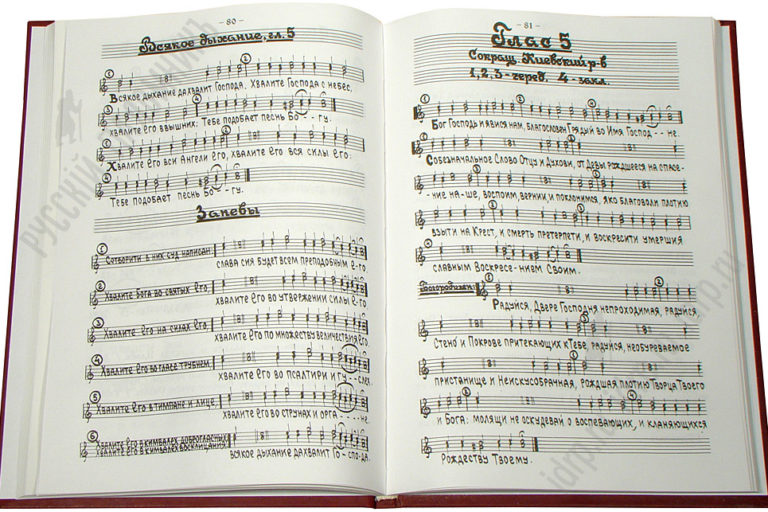 - 80 -
Всякое дыхание, гл. 5
Всякое дыхание да хвалит Господа. Хвалите Господа с небес,
хвалите Его ввышних: Тебе подобает песнь Бо - гу.
Хвалите Его вси Ангели Его, хвалите Его вся силы Его:
Тебе подобает песнь Богу.
Запевы
① Сотворити в них суд написан:
слава сия будет всем преподобным Е-го.
② Хвалите Бога во святых Его,
хвалите Его во утвержении силы Е-го.
③ Хвалите Его на силах Его,
хвалите Его по множеству величествия Его
④ Хвалите Его во гласе трубнем,
хвалите Его во псалтири и гу - слех.
⑤ Хвалите Его в тимпане и лице,
хвалите Его во струнах и орга . . . не.
⑥ Хвалите Его в кимвалех доброгласных,
Хвалите Его в кимвалех восклицания.
всякое дыхание да хвалит Го - спо-да.
- 81 -
Глас 5
Сокращ. Киевский р-в
1, 2, 3 - черед. 4 - закл.
Бог Господь и явися нам, благословен Грядый во Имя Господ - - не.
Собезначальное Слово Отцу и Духови, от Девы рождшееся на спасе-
ние на-ше, воспоим, вернии, и поклонимся, яко благоволи плотию
взыти на Крест, и смерть претерпети, и воскресити умершия
славным Воскресе-нием Своим.
Богородичен:
Радуйся, Двере Господня непроходимая, радуйся,
Стено и Покрове притекающих к Тебе, радуйся, необуреваемое
пристанище и Неискусобрачная, рождшая плотию Творца Твоего
и Бога: молящи не оскудевай о воспевающих, и кланяющихся
Рождеству Твоему.